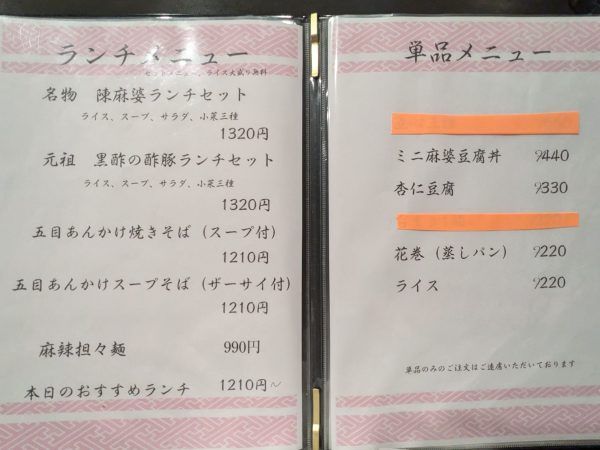 ランチメニュー
セットメニュー、ライス大盛り無料
名物 陳麻婆ランチセット
ライス、スープ、サラダ、小菜三種
1320円
元祖 黒酢の酢豚ランチセット
ライス、スープ、サラダ、小菜三種
1320円
五目あんかけ焼きそば(スープ付)
1210円
五目あんかけスープそば(ザーサイ付)
1210円
麻辣担々麺 990円
本日のおすすめランチ 1210円～
単品メニュー
ミニ麻婆豆腐丼 ¥440
杏仁豆腐 ¥330
花巻(蒸しパン) ¥220
ライス ¥220
単品のみのご注文はご遠慮いただいております